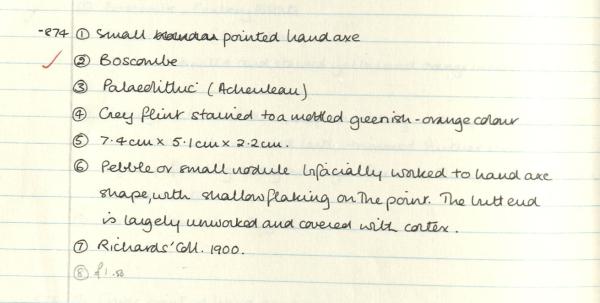 -874 ① Small pointed handaxe
② Boscombe
③ Palaeolithic (Acheuleau)
④ Grey flint stained to a mottled greenish-orange colour
⑤ 7.4cm x 5.1cm x 2.2cm.
⑥ Pebble or small nodule bifacially worked to hand axe
shape, with shallow flaking on the point. The butt end
is largely unworked and covered with cortex.
⑦ Richards' Coll. 1900.
⑧ £1.50